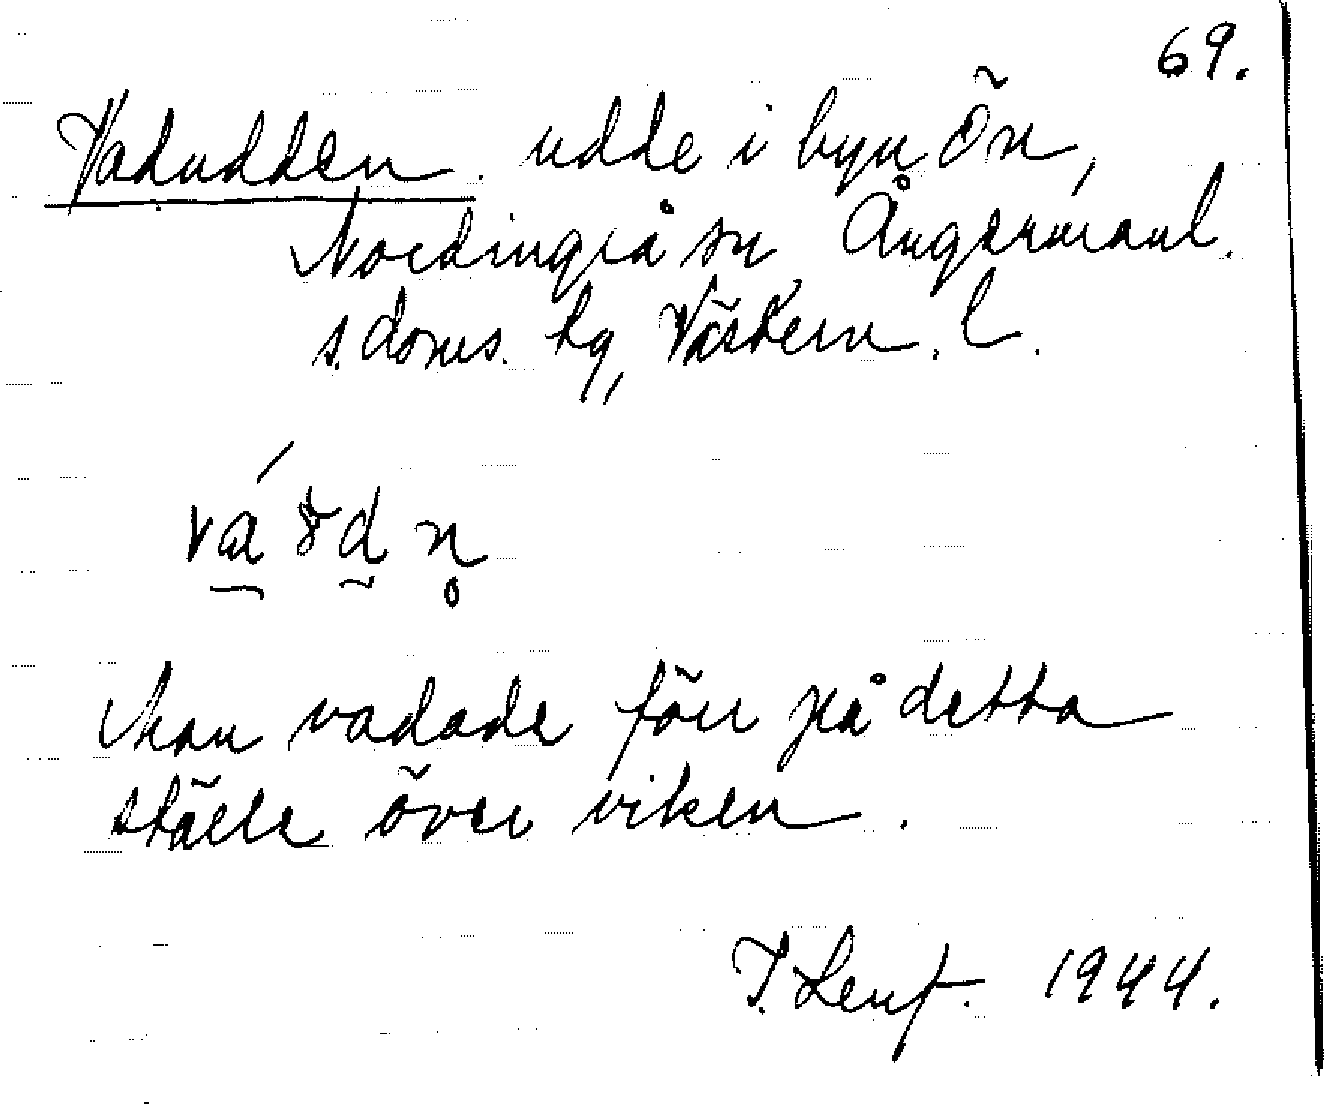 69.
Vadudden. udde i byn Ön,
Nordingrå sn Ångermanl.
s. doms. hg, Västern. l.
Man vadade förr på detta
ställe över viken.
1944.